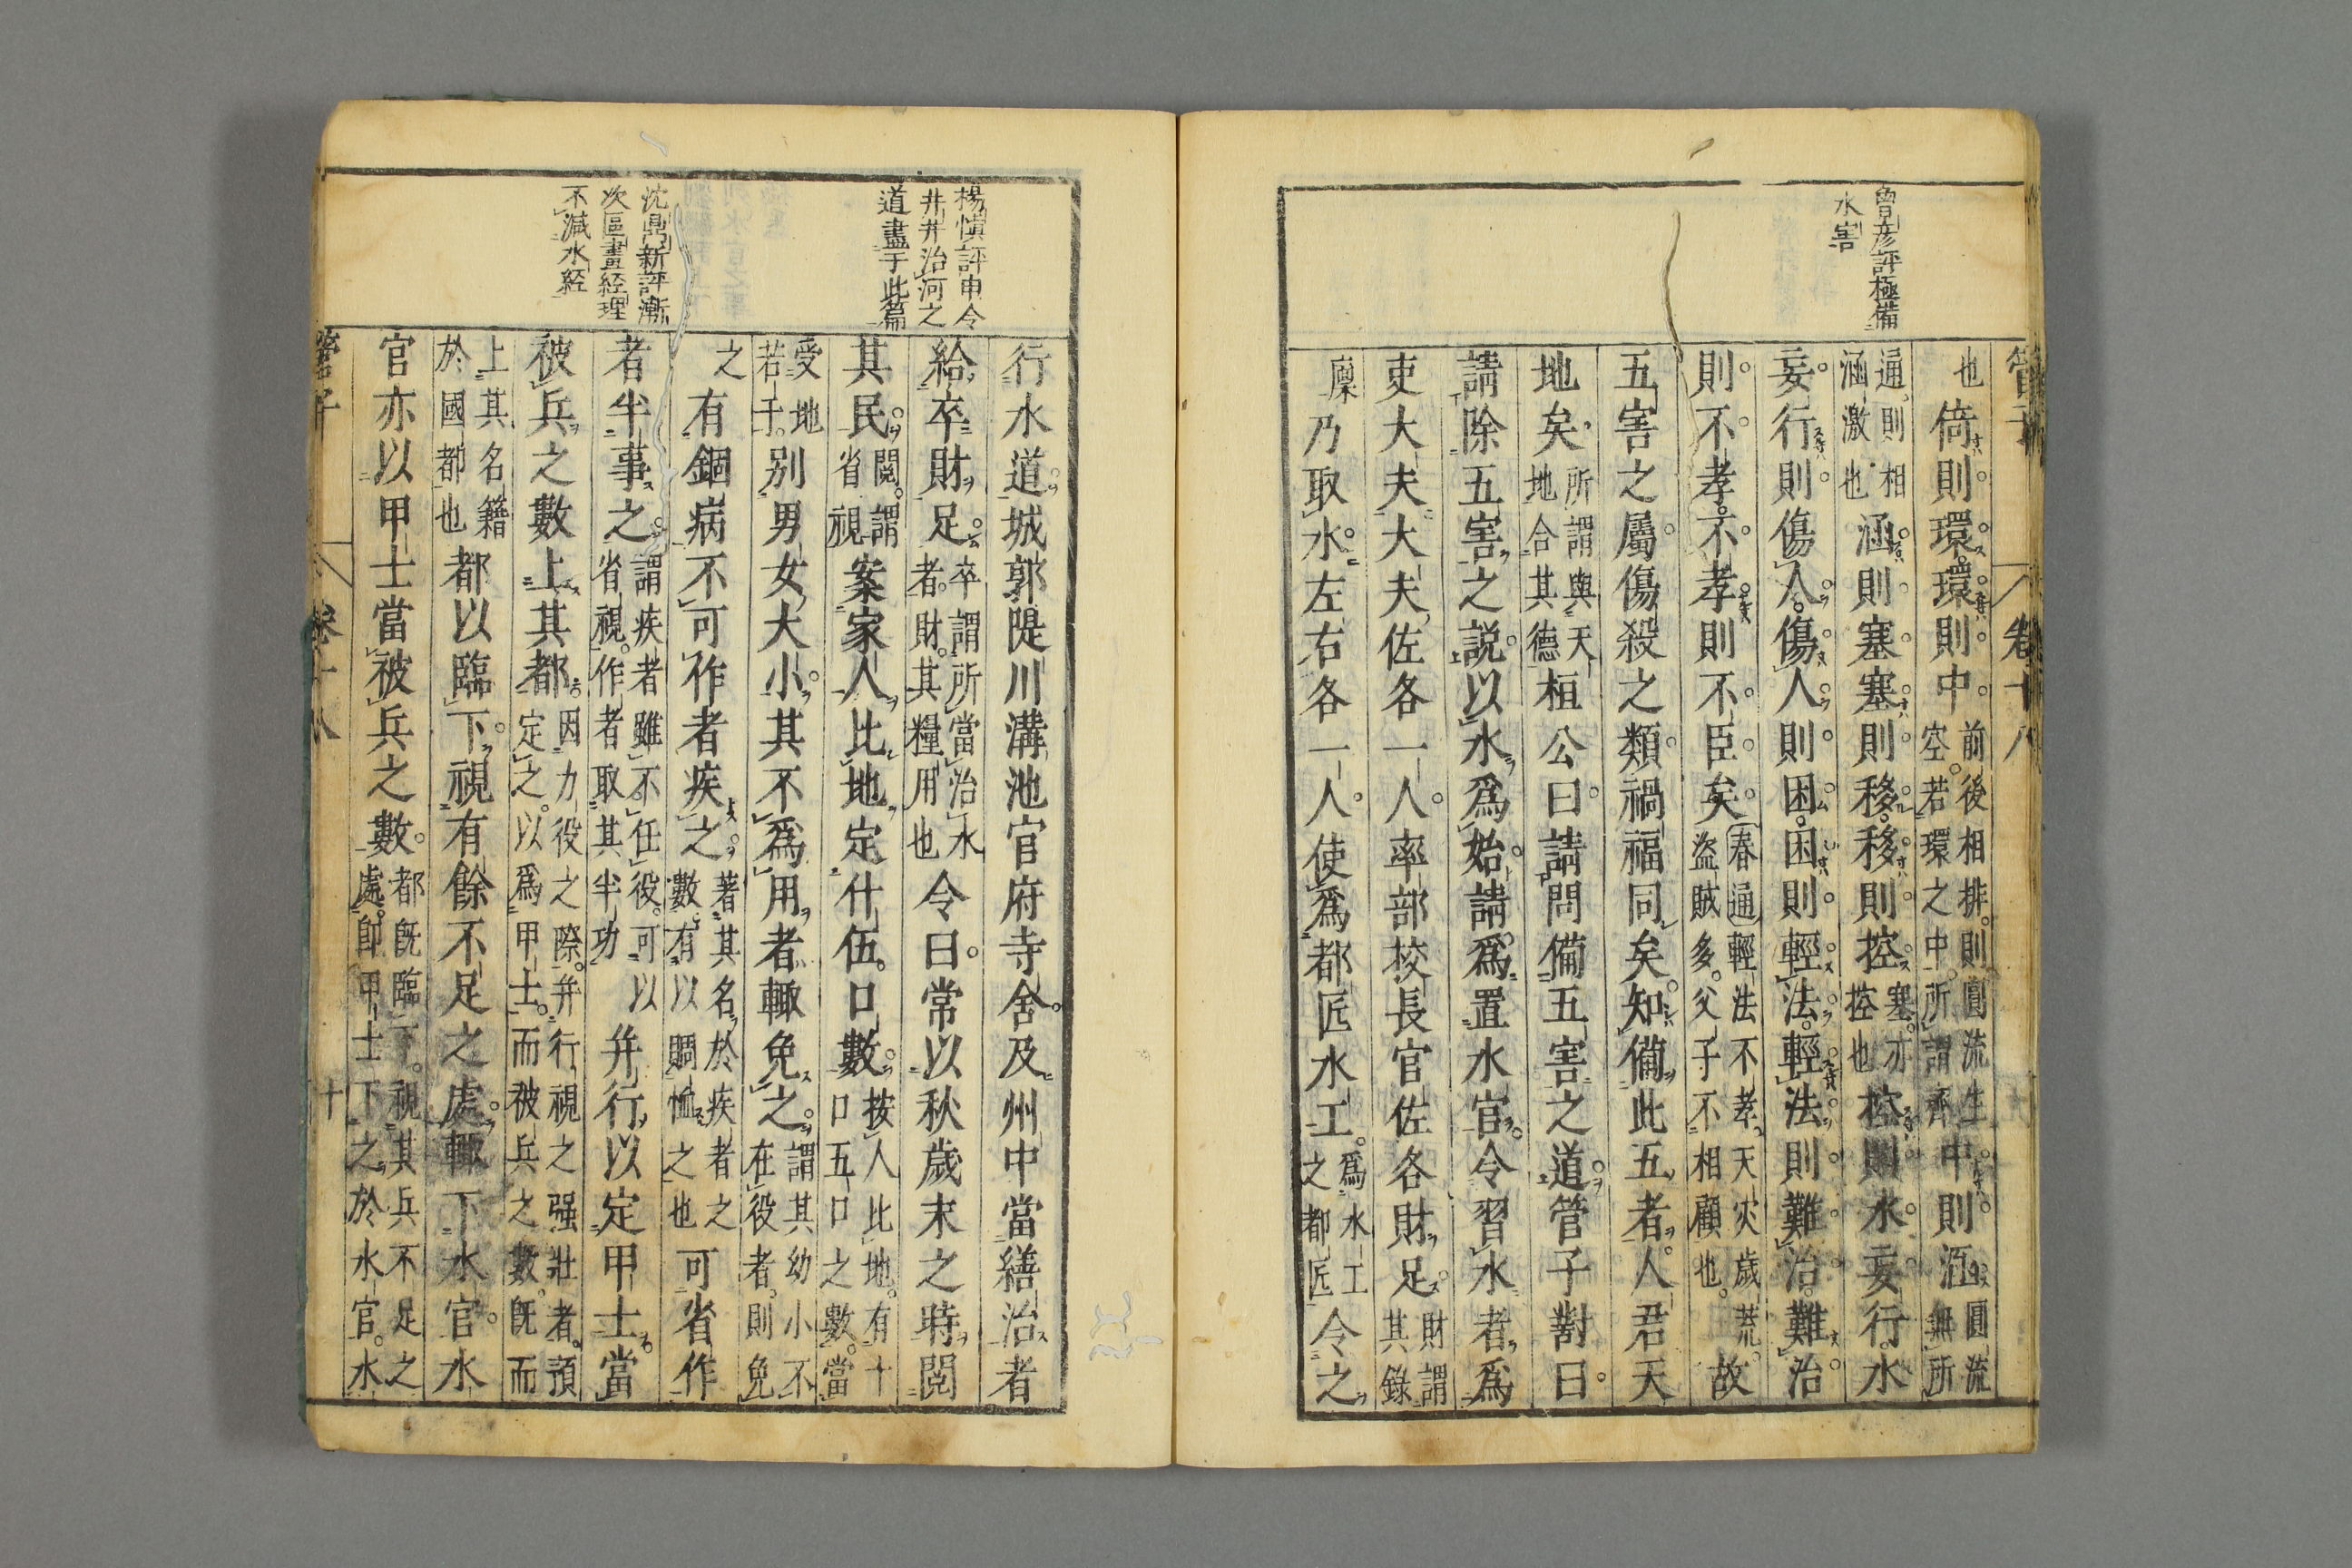 曾彦評極備
水害
管子
卷十八
也倚則環環則中前後相排則圓流生空若環之中所謂齊中則涵圓流無所
通則相涵激也涵則塞塞則移移則控塞亦控也控則水妄行水
妄行則傷人傷人則困困則輕法輕法則難治難治
則不孝不孝則不臣矣春通輕法不孝天灾歲荒盜賊多父子不相顧也故
五害之屬傷殺之類禍福同矣知備此五者人君天
地矣所謂與天地合其德桓公曰請問備五害之道管子對曰
請除五害之説以水爲始請爲置水官令習水者爲
吏大夫大夫佐各一人率部校長官佐各財足財謂其錄
廩乃取水左右各一人使爲都匠水工爲水工之都匠令之
楊慎評申令
井井治河之
道盡于此篇
沈鼎新評漸
次區畫経理
不減水経
行水道城郭隄川溝池官府寺舍及州中當繕治者
給卒財足卒謂所當治水者財其糧用也令曰常以秋歲末之時閲
其民閲謂省視案家人比地定什伍口數按人比地有十口五口之數當
受地若干別男女大小其不爲用者輙免之謂其幼小不在役者則免
之有錮病不可作者疾之著其名於疾者之數有以賙恤之也可省作
者半事之謂疾者雖不任役可以省視作者取其半功并行以定甲士當
被兵之數上其都因力役之際并行視之强壯者預定之以爲甲士而被兵之數旣而
上其名籍於國都也都以臨下視有餘不足之處輙下水官水
官亦以甲士當被兵之數都旣臨下視其兵不足之處卽甲士下之於水官水
管子
卷十八
十